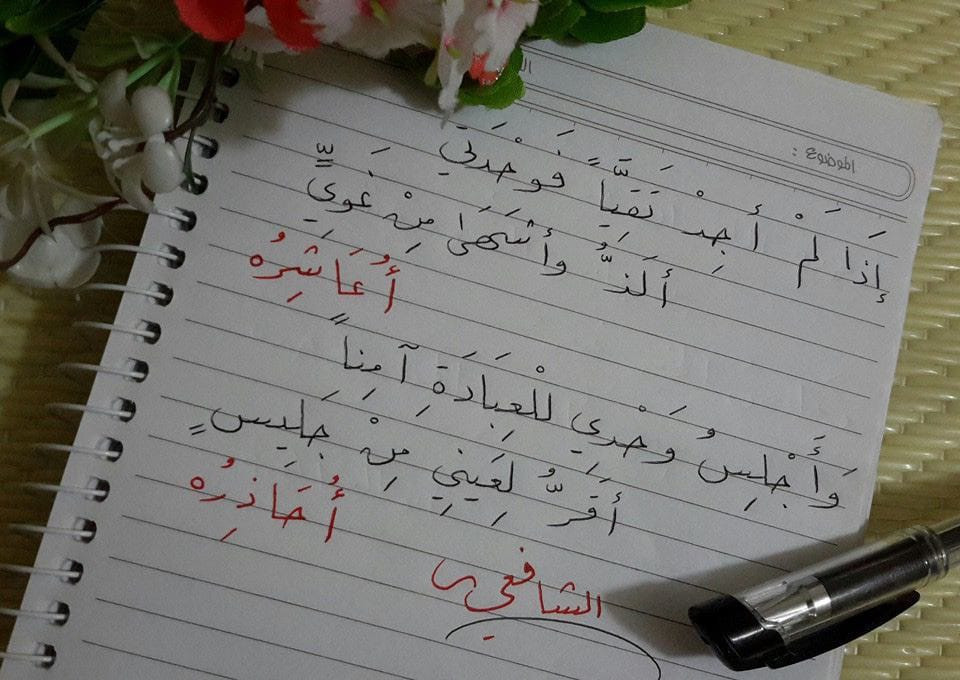 الموضوع :
إِذَا لَمْ أَجِدْ تَقِيّاً فَوَحْدَتِي
أَلَذُّ وَأَشْهَىَ مِنْ غَوِيٍّ
أُعَاشِرُهُ
وَأَجْلِسُ وَحْدِي لِلْعِبَادَةِ آمِناً
أَقَرُّ لِعَيْنِي مِنْ جَلِيسٍ
أُحَاذِرُهُ
الشافعي